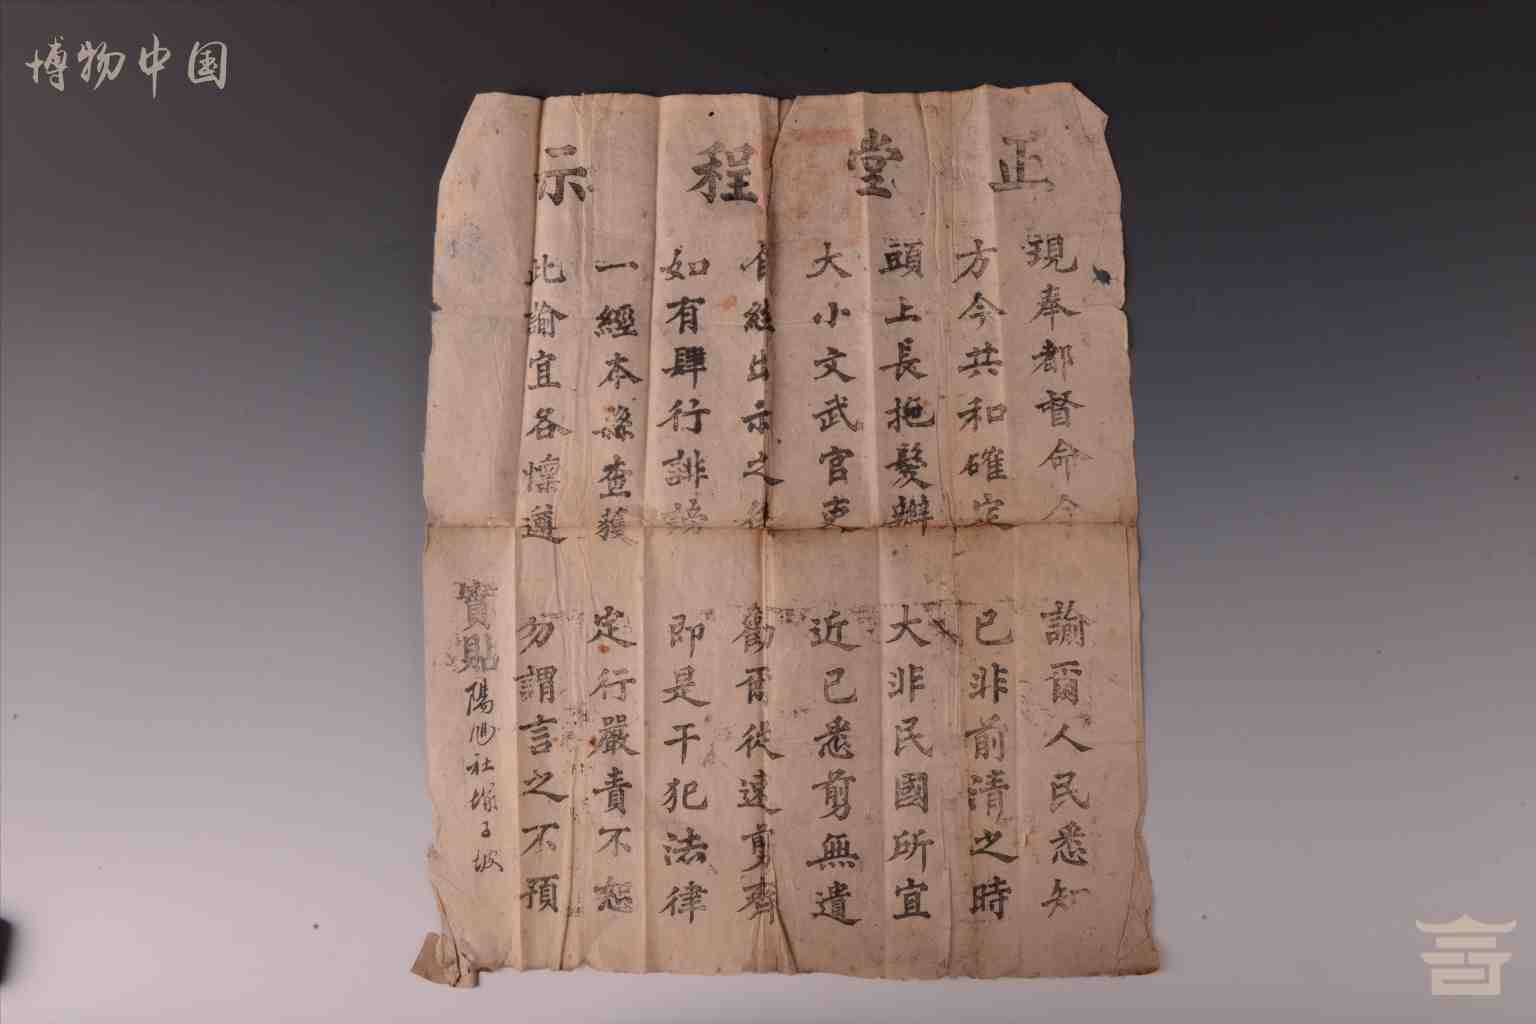 博物中国
正堂程示
現奉都督命令 諭爾人民悉知
方今共和確定 已非前清之時
頭上長拖髮辮 大非民國所宜
大小文武官吏 近已悉剪無遺
自經出示之後 勸爾從速剪齊
如有肆行誹謗 即是干犯法律
一經本縣查獲 定行嚴責不恕
此諭宜各懍遵 勿謂言之不預
實貼陽
社塚子坡